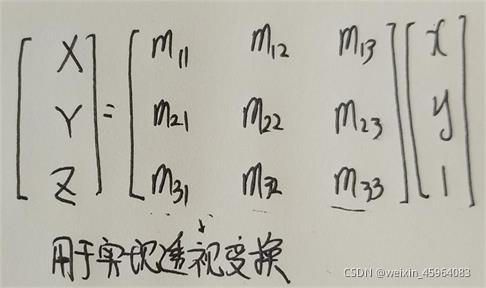 [X] = [m11 m12 m13] [x]
[Y] = [m21 m22 m23] [y]
[Z] = [m31 m32 m33] [1]
用于实现透视变换
CSDN @weixin_45964083